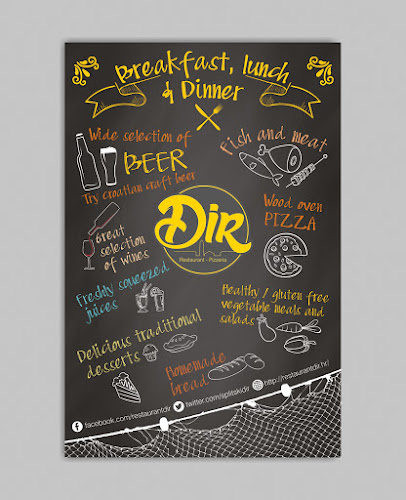 Breakfast, lunch
& Dinner
Wide selection of
BEER
Try croatian craft beer
Fish and meat
Great
selection
of wines
Dir
Restaurant - Pizzeria
Wood oven
PIZZA
Freshly squeezed
juices
Healthy / gluten free
vegetable meals and
salads
Delicious traditional
desserts
Homemade
bread
facebook.com/restaurantdir
twitter.com/splitskidir
http://restaurantdir.hr/